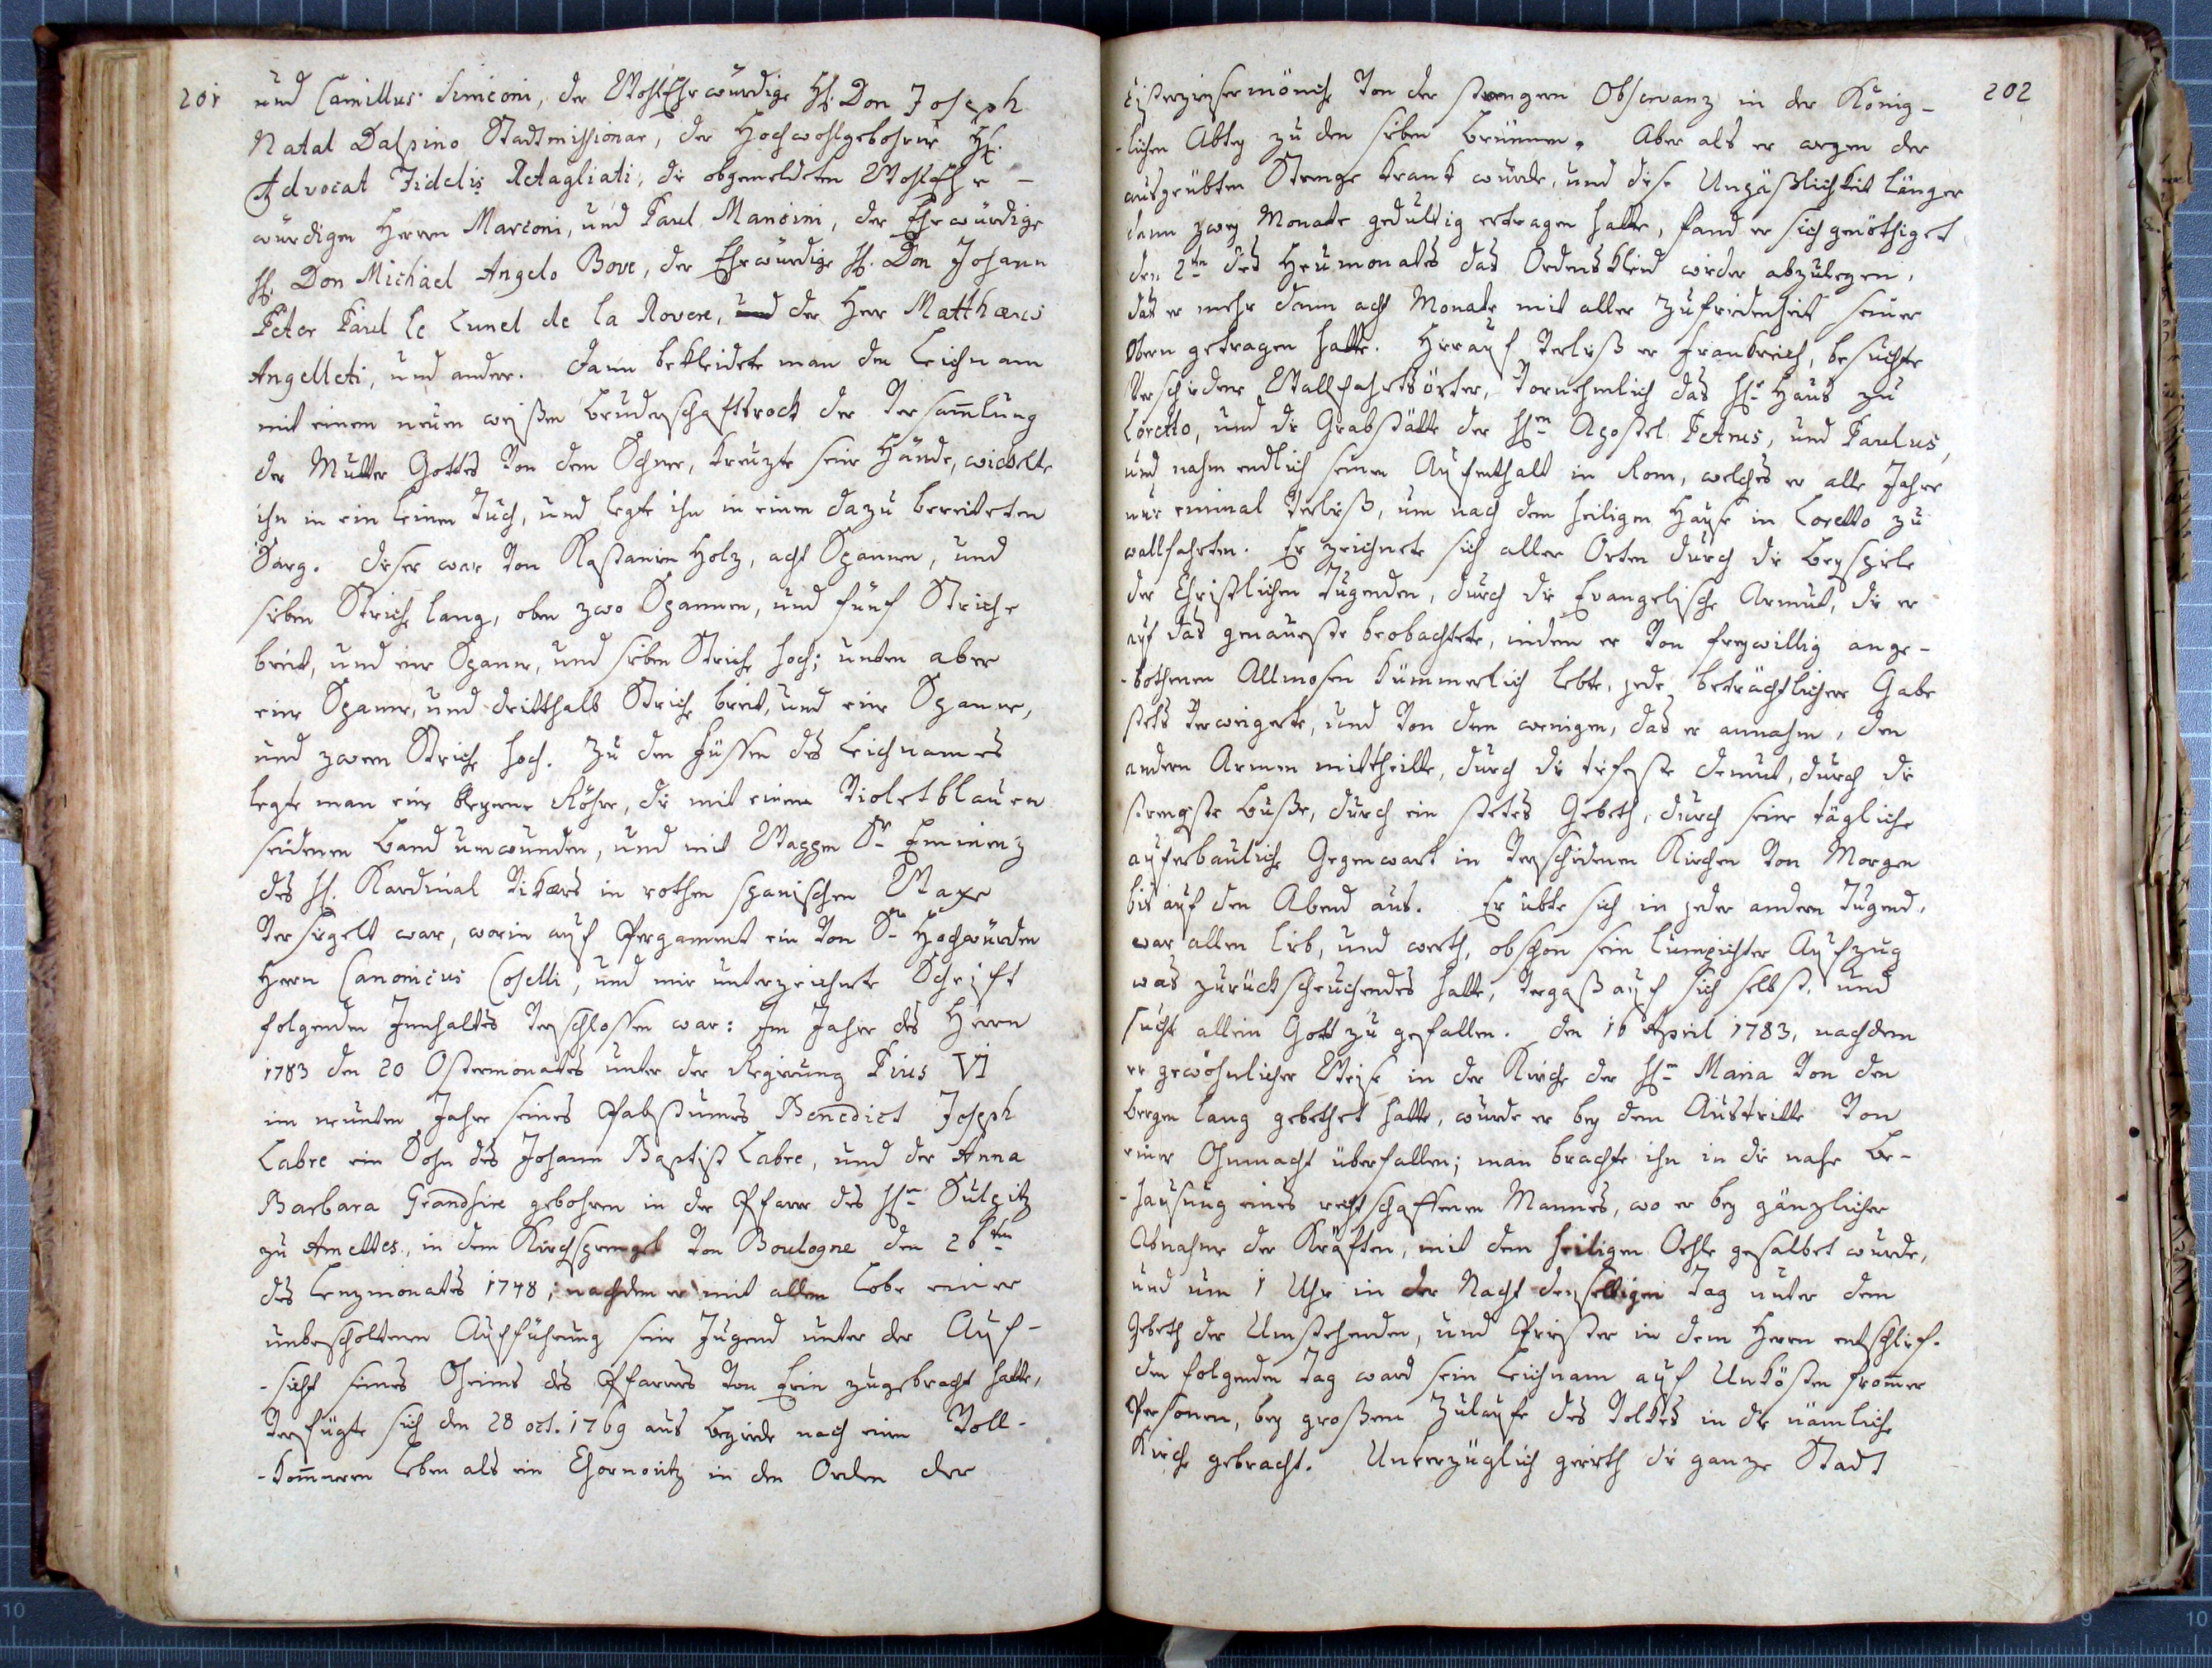 201
und Camillus Simeoni, der WohlEhrwürdige H. Don Joseph
Natal Dalpino Stadtmissionar, der Hochwohlgebohrne H.
Advocat Fidelis Retagliati, die obgemeldeten Wohlehr-
würdigen Herren Marconi, und Paul Mancini, der Ehrwürdige
H. Don Michael Angelo Bove, der Ehrwürdige H. Don Johann
Peter Paul le Lunel de la Rovere, und der Herr Matthæus
Angelleti, und andere. Dann bekleidete man den Leichnam
mit einem neuen weißen Bruderschaftsrock der Versam̄lung
der Mutter Gottes von dem Schnee, kreuzte seine Hände, wickelte
ihn in ein leinen Tuch, und legte ihn in einen dazu bereiteten
Sarg. Dieser war von Kastanien Holz, acht Spannen, und
sieben Striche lang, oben zwo Spannen, und fünf Striche
breit, und eine Spanne, und sieben Striche hoch; unten aber
eine Spanne, und dritthalb Striche breit, und eine Spanne,
und zween Striche hoch. Zu den Füssen des Leichnames
legte man eine bleyerne Röhre, die mit einem violetblauen
seidenen Band umwunden, und mit Wappen Sr Eminenz
des H. Kardinal Vikars in rothen spanischen Waxe
versigelt war, worin auf Pergament ein von Sr Hochwürden
Herrn Canonicus Coselli, und mir unterzeichnete Schrift
folgenden Innhaltes verschlossen war: Im Jahre des Herrn
1783 den 20 Ostermonates unter der Regierung Pius VI
im neunten Jahre seines Pabstumes Benedict Joseph
Labre ein Sohn des Johann Baptist Labre, und der Anna
Barbara Grandsire gebohren in der Pfarre des Hn Sulpitz
zu Amettes, in dem Kirchsprengel von Boulogne den 26ten
des Lenzmonates 1748; nachdem er mit allem Lobe einer
unbescholtenen Aufführung seine Jugend unter der Auf-
-sicht seines Oheims des Pfarrers von Erin zugebracht hatte,
verfügte sich den 28 oct. 1769 aus Begierde nach einem voll-
-kom̄neren Leben als ein Chornovitz in den Orden der
202
Cisterzienser mönche von der strengern Observanz in der König-
-lichen Abtey zu den sieben Brünnen. Aber als er wegen der
ausgeübten Strenge krank wurde, und diese Unpäßlichkeit länger
dann zwey Monate geduldig ertragen hatte, fand er sich genöthiget
den 2ten des Heumonates das Ordenskleid wieder abzulegen,
das er mehr dann acht Monate mit aller Zufriedenheit seiner
Obern getragen hatte. Hierauf verließ er Frankreich, besuchte
verschidene Wallfahrtsörter, vornehmlich das H. Haus zu
Loretto, und die Grabstätte der Hn Apostel Petrus, und Paulus,
und nahm endlich seinen Aufenthalt in Rom, welches er alle Jahre
nur einmal verließ, um nach dem heiligen Hause in Loretto zu
wallfahrten. Er zeichnete sich aller Orten durch die Beyspiele
der Christlichen Tugenden, durch die Evangelische Armut, die er
auf das genaueste beobachtete, indem er von freywillig ange-
-bothenen Allmosen kümmerlich lebte, jede beträchtlichere Gabe
stets verweigerte, und von dem wenigen, das er annahm, den
andern Armen mittheilte, durch die tiefeste Demut, durch die
strengste Buße, durch ein stetes Gebeth, durch seine tägliche
auferbauliche Gegenwart in verschidenen Kirchen von Morgen
bis auf den Abend aus. Er übte sich in jeder andern Tugend,
war allen lieb, und werth, obschon sein lumpichter Aufzug
was zurückscheuchendes hatte, vergaß auf sich selbst, und
suchte allein Gott zu gefallen. Den 16 April 1783, nachdem
er gewöhnlicher Weise in der Kirche der Hn Maria von den
Bergen lang gebethet hatte, wurde er bey dem Austritte von
einer Ohnmacht überfallen; man brachte ihn in die nahe Be-
-hausung eines rechtschaffenen Mannes, wo er bey gänzlicher
Abnahme der Kräften, mit dem heiligen Oehle gesalbet wurde,
und um 1 Uhr in der Nacht denselbigen Tag unter dem
Gebeth der Umstehenden, und Priester in dem Herrn entschlief.
Den folgenden Tag ward sein Leichnam auf Unkösten from̄er
Personen, bey großem Zulaufe des Volkes in die nämliche
Kirche gebracht. Unverzüglich gerieth die ganze Stadt